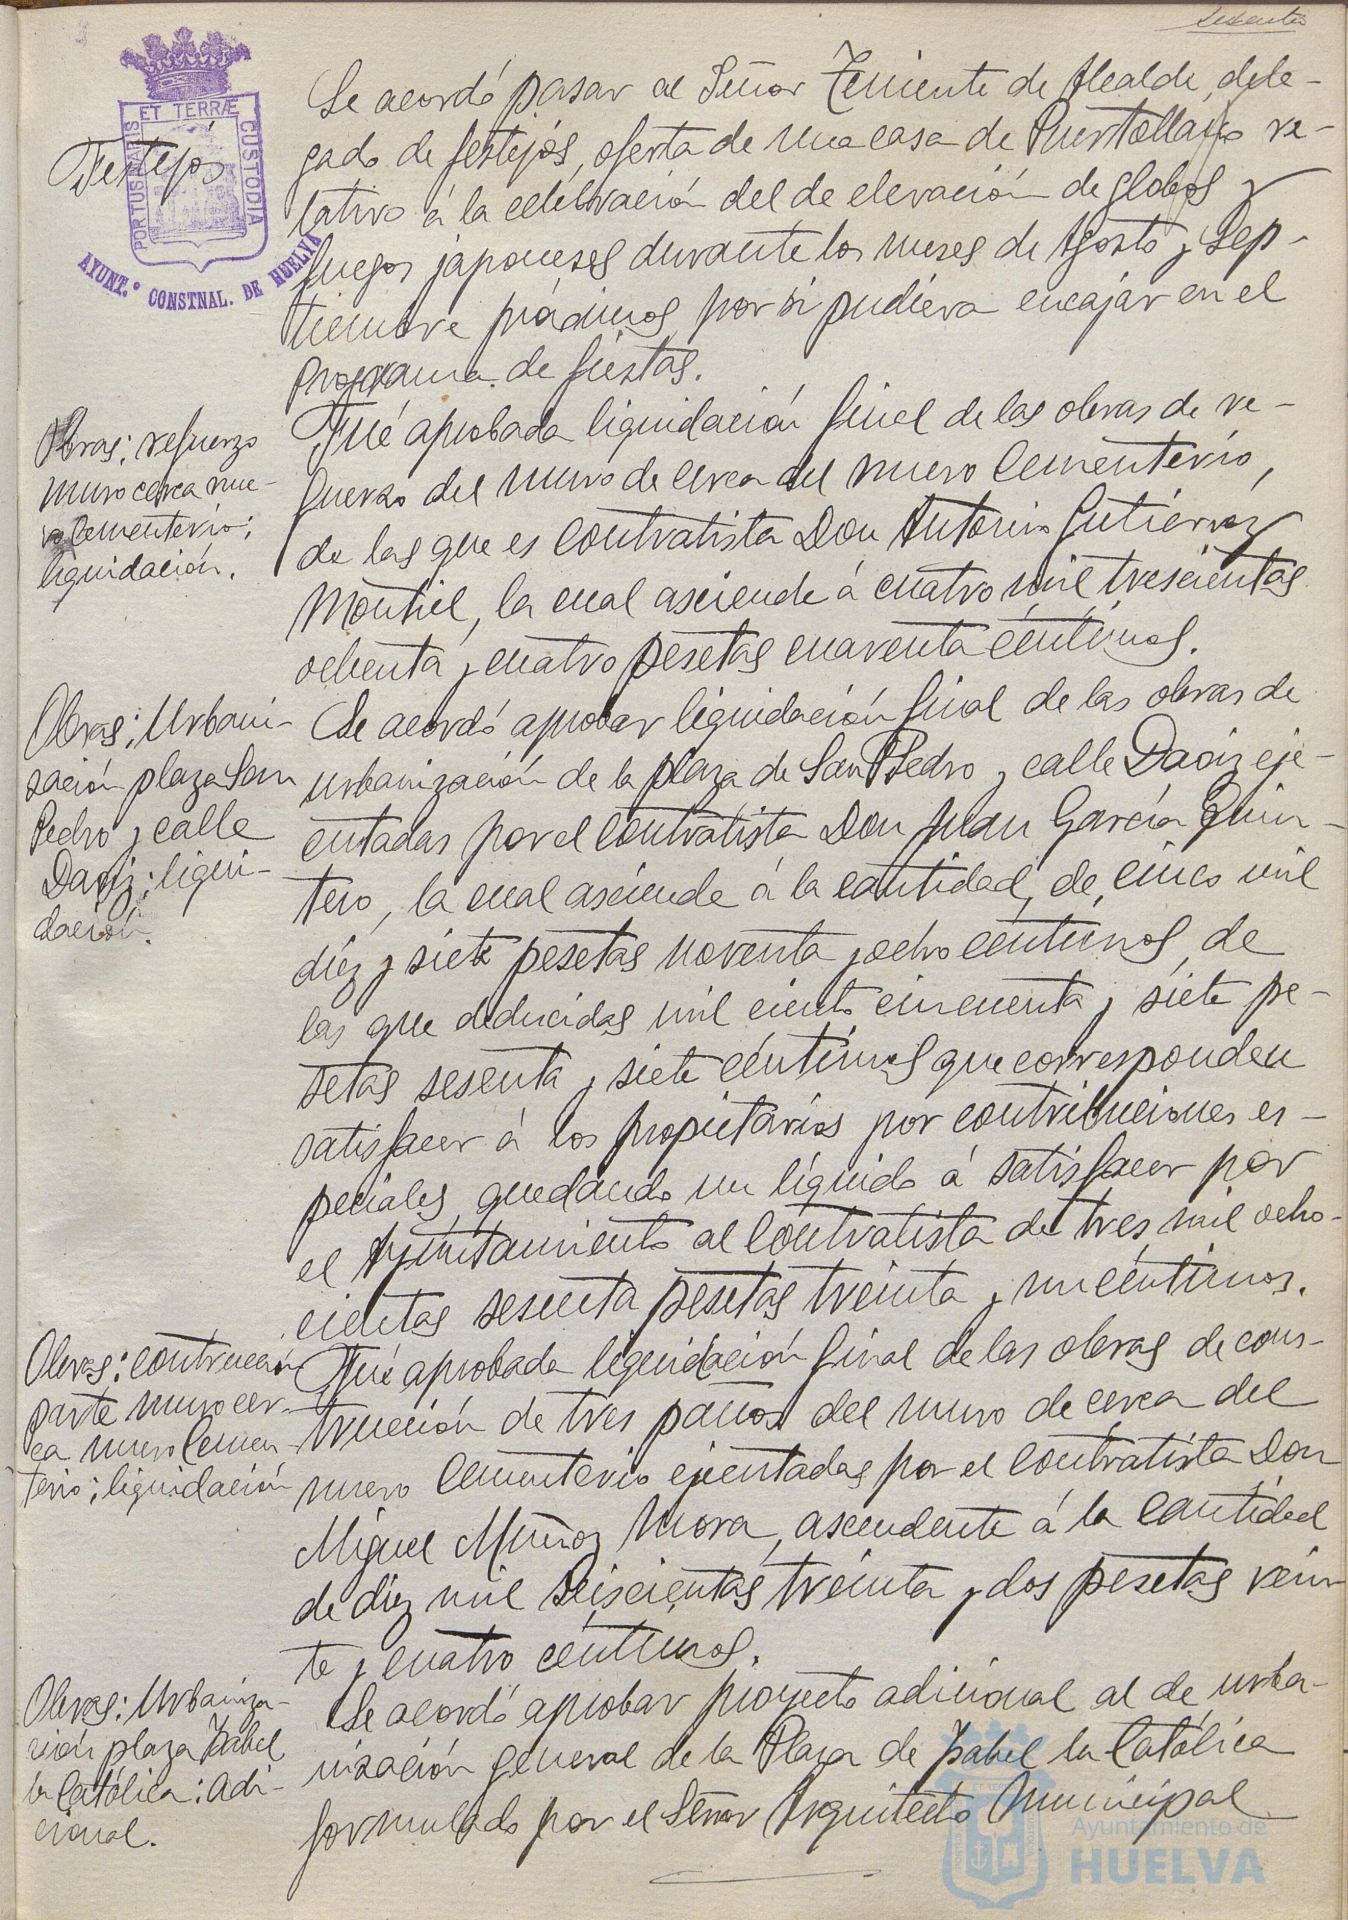 sesenta
PORTUS MARIS ET TERRÆ CUSTODIA
AYUNT.º CONSTNAL. DE HUELVA
Festejos
Se acordó pasar al Señor Teniente de Alcalde, dele-
gado de festejos, oferta de una casa de Puertollano re-
lativo á la celebración del de elevación de globos y
fuegos japoneses durante los meses de Agosto y Sep-
tiembre próximos, por si pudiera encajar en el
programa de fiestas.
Obras; refuerzo
muro cerca nue-
vo Cementerio;
liquidación.
Fué aprobada liquidación final de las obras de re-
fuerzo del muro de cerca del nuevo Cementerio,
de las que es contratista Don Antonio Gutiérrez
Montiel, la cual asciende á cuatro mil trescientas
ochenta y cuatro pesetas cuarenta céntimos.
Obras; Urbani-
zación plaza San
Pedro y calle
Daoiz; liqui-
dación.
Se acordó aprobar liquidación final de las obras de
urbanización de la plaza de San Pedro y calle Daoiz eje-
cutadas por el contratista Don Juan García Quin-
tero, la cual asciende á la cantidad, de, cinco mil
diez y siete pesetas noventa y ocho céntimos, de
las que deducidas mil ciento cincuenta y siete pe-
setas sesenta y siete céntimos que corresponden
satisfacer á los propietarios por contribuciones es-
peciales, quedando un líquido á satisfacer por
el Ayuntamiento al contratista de tres mil ocho-
cientas sesenta pesetas treinta y un céntimos.
Obras: contrucción
parte muro cer-
ca nuevo Cemen-
terio; liquidación
Fué aprobada liquidación final de las obras de cons-
trucción de tres paños del muro de cerca del
nuevo Cementerio ejecutadas por el contratista Don
Miguel Muñoz Mora, ascendente á la cantidad
de diez mil seiscientas treinta y dos pesetas vein-
te y cuatro céntimos.
Obras: Urbaniza-
ción plaza Isabel
la Católica: adi-
cional.
Se acordó aprobar proyecto adicional al de urba-
nización general de la Plaza de Isabel la Católica
formulado por el Señor Arquitecto Municipal
Ayuntamiento de
HUELVA